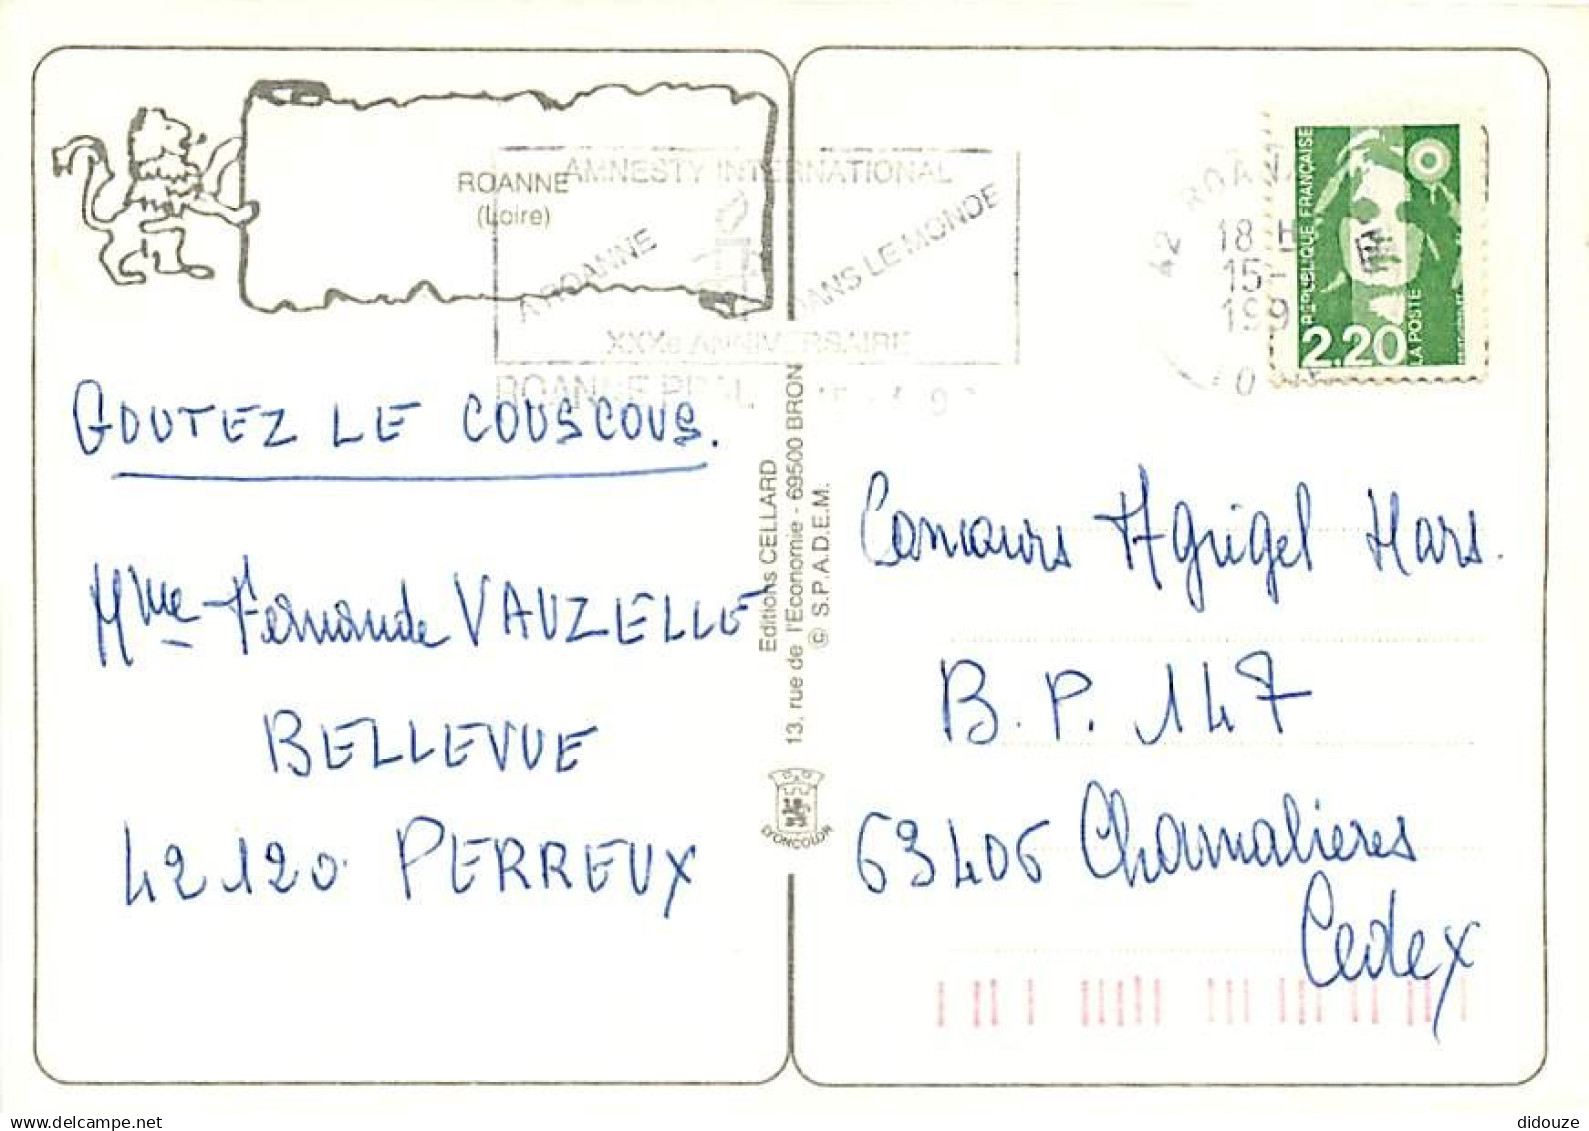 ROANNE
(Loire)
AMNESTY INTERNATIONAL
A ROANNE
DANS LE MONDE
XXXe ANNIVERSAIRE
ROANNE PPAL
42 ROANNE
18 H
15-
199
RÉPUBLIQUE FRANÇAISE
2,20
LA POSTE
GOUTEZ LE COUSCOUS.
Mme Fernande VAUZELLE
BELLEVUE
42120 PERREUX
Editions CELLARD
13, rue de l'Economie - 69500 BRON
© S.P.A.D.E.M.
LYONCOLOR
Concours Agrigel Mars.
B.P. 147
63406 Chamalieres
Cedex
didouze